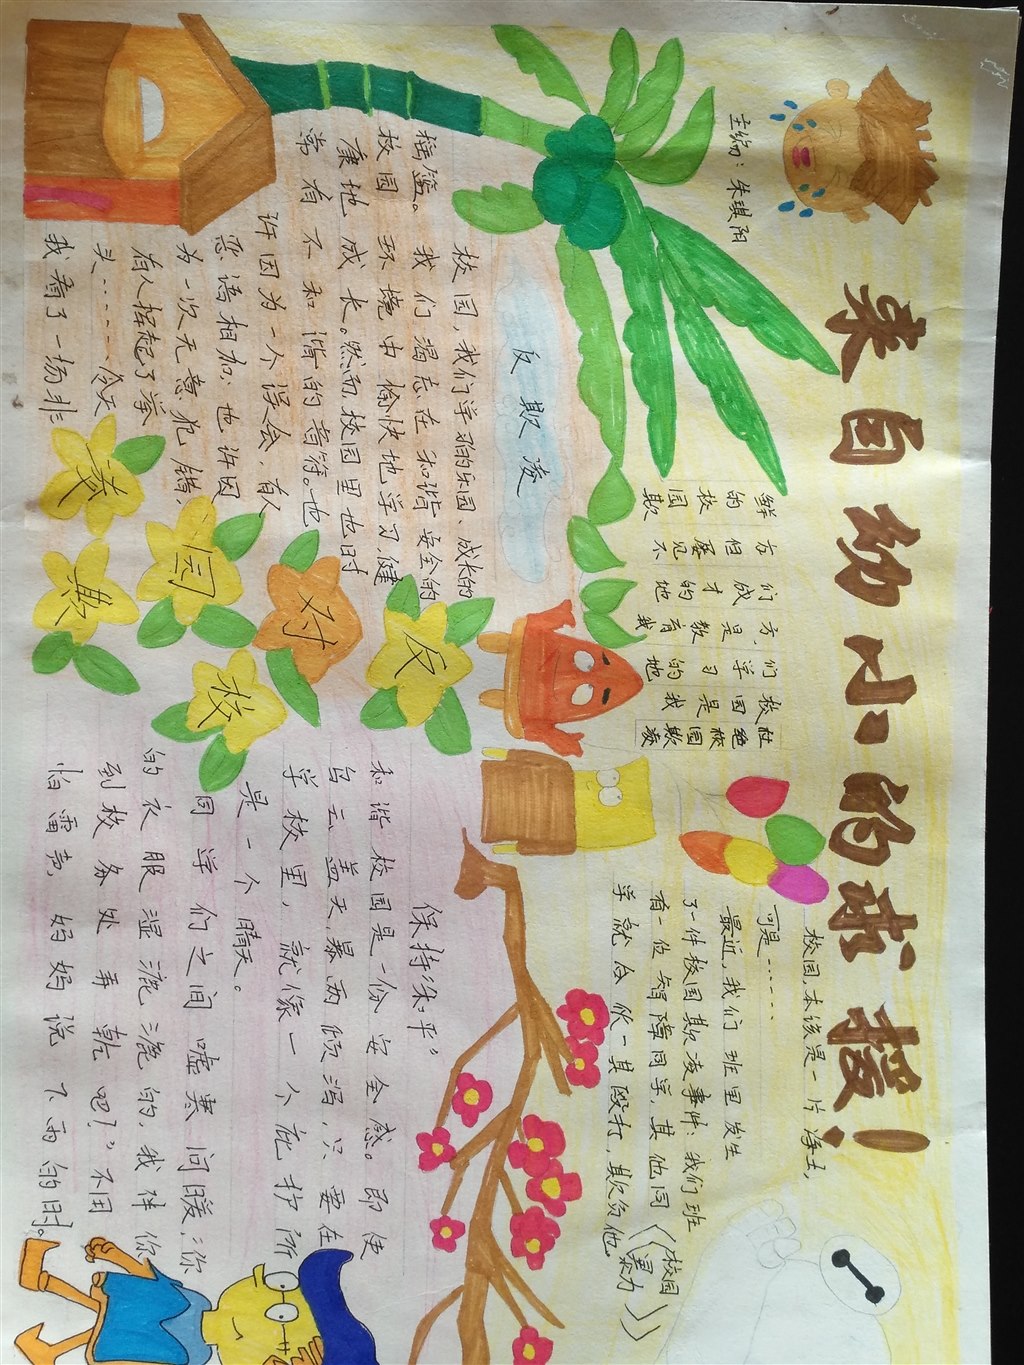 来自幼小的求援！
主编：朱琪阳
校园，本该是一片净土，
可是……
最近，我们班里发生
了一件校园欺凌事件：我们班
有一位智障同学，其他同
学就合伙一其殴打，欺负他。
（校园
暴力）
杜绝校园欺凌
校园是我
们学习的地
方，是教育我
们成才的地
方，但屡见不
鲜的校园欺
反欺凌
校园，我们学习的乐园、成长的
摇篮。我们渴志在和谐安全的
校园环境中愉快地学习，健
康地成长。然而，校园里也时
常有不和谐的音符。也
许因为一个误会，有人
恶语相加；也许因
为一次无意犯错，
有人挥起了拳
头……今天
我看了一场非
反对校园欺凌
保持“和平”
和谐校园是一份安全感。即使
乌云盖天，暴雨倾泻，只要在
学校里，就像一个庇护所
是一个晴天。
同学们之间嘘寒问暖，“你
的衣服湿漉漉的，我伴你
到校务处弄乾吧！”不用
怕雷声，妈妈说下雨的时。